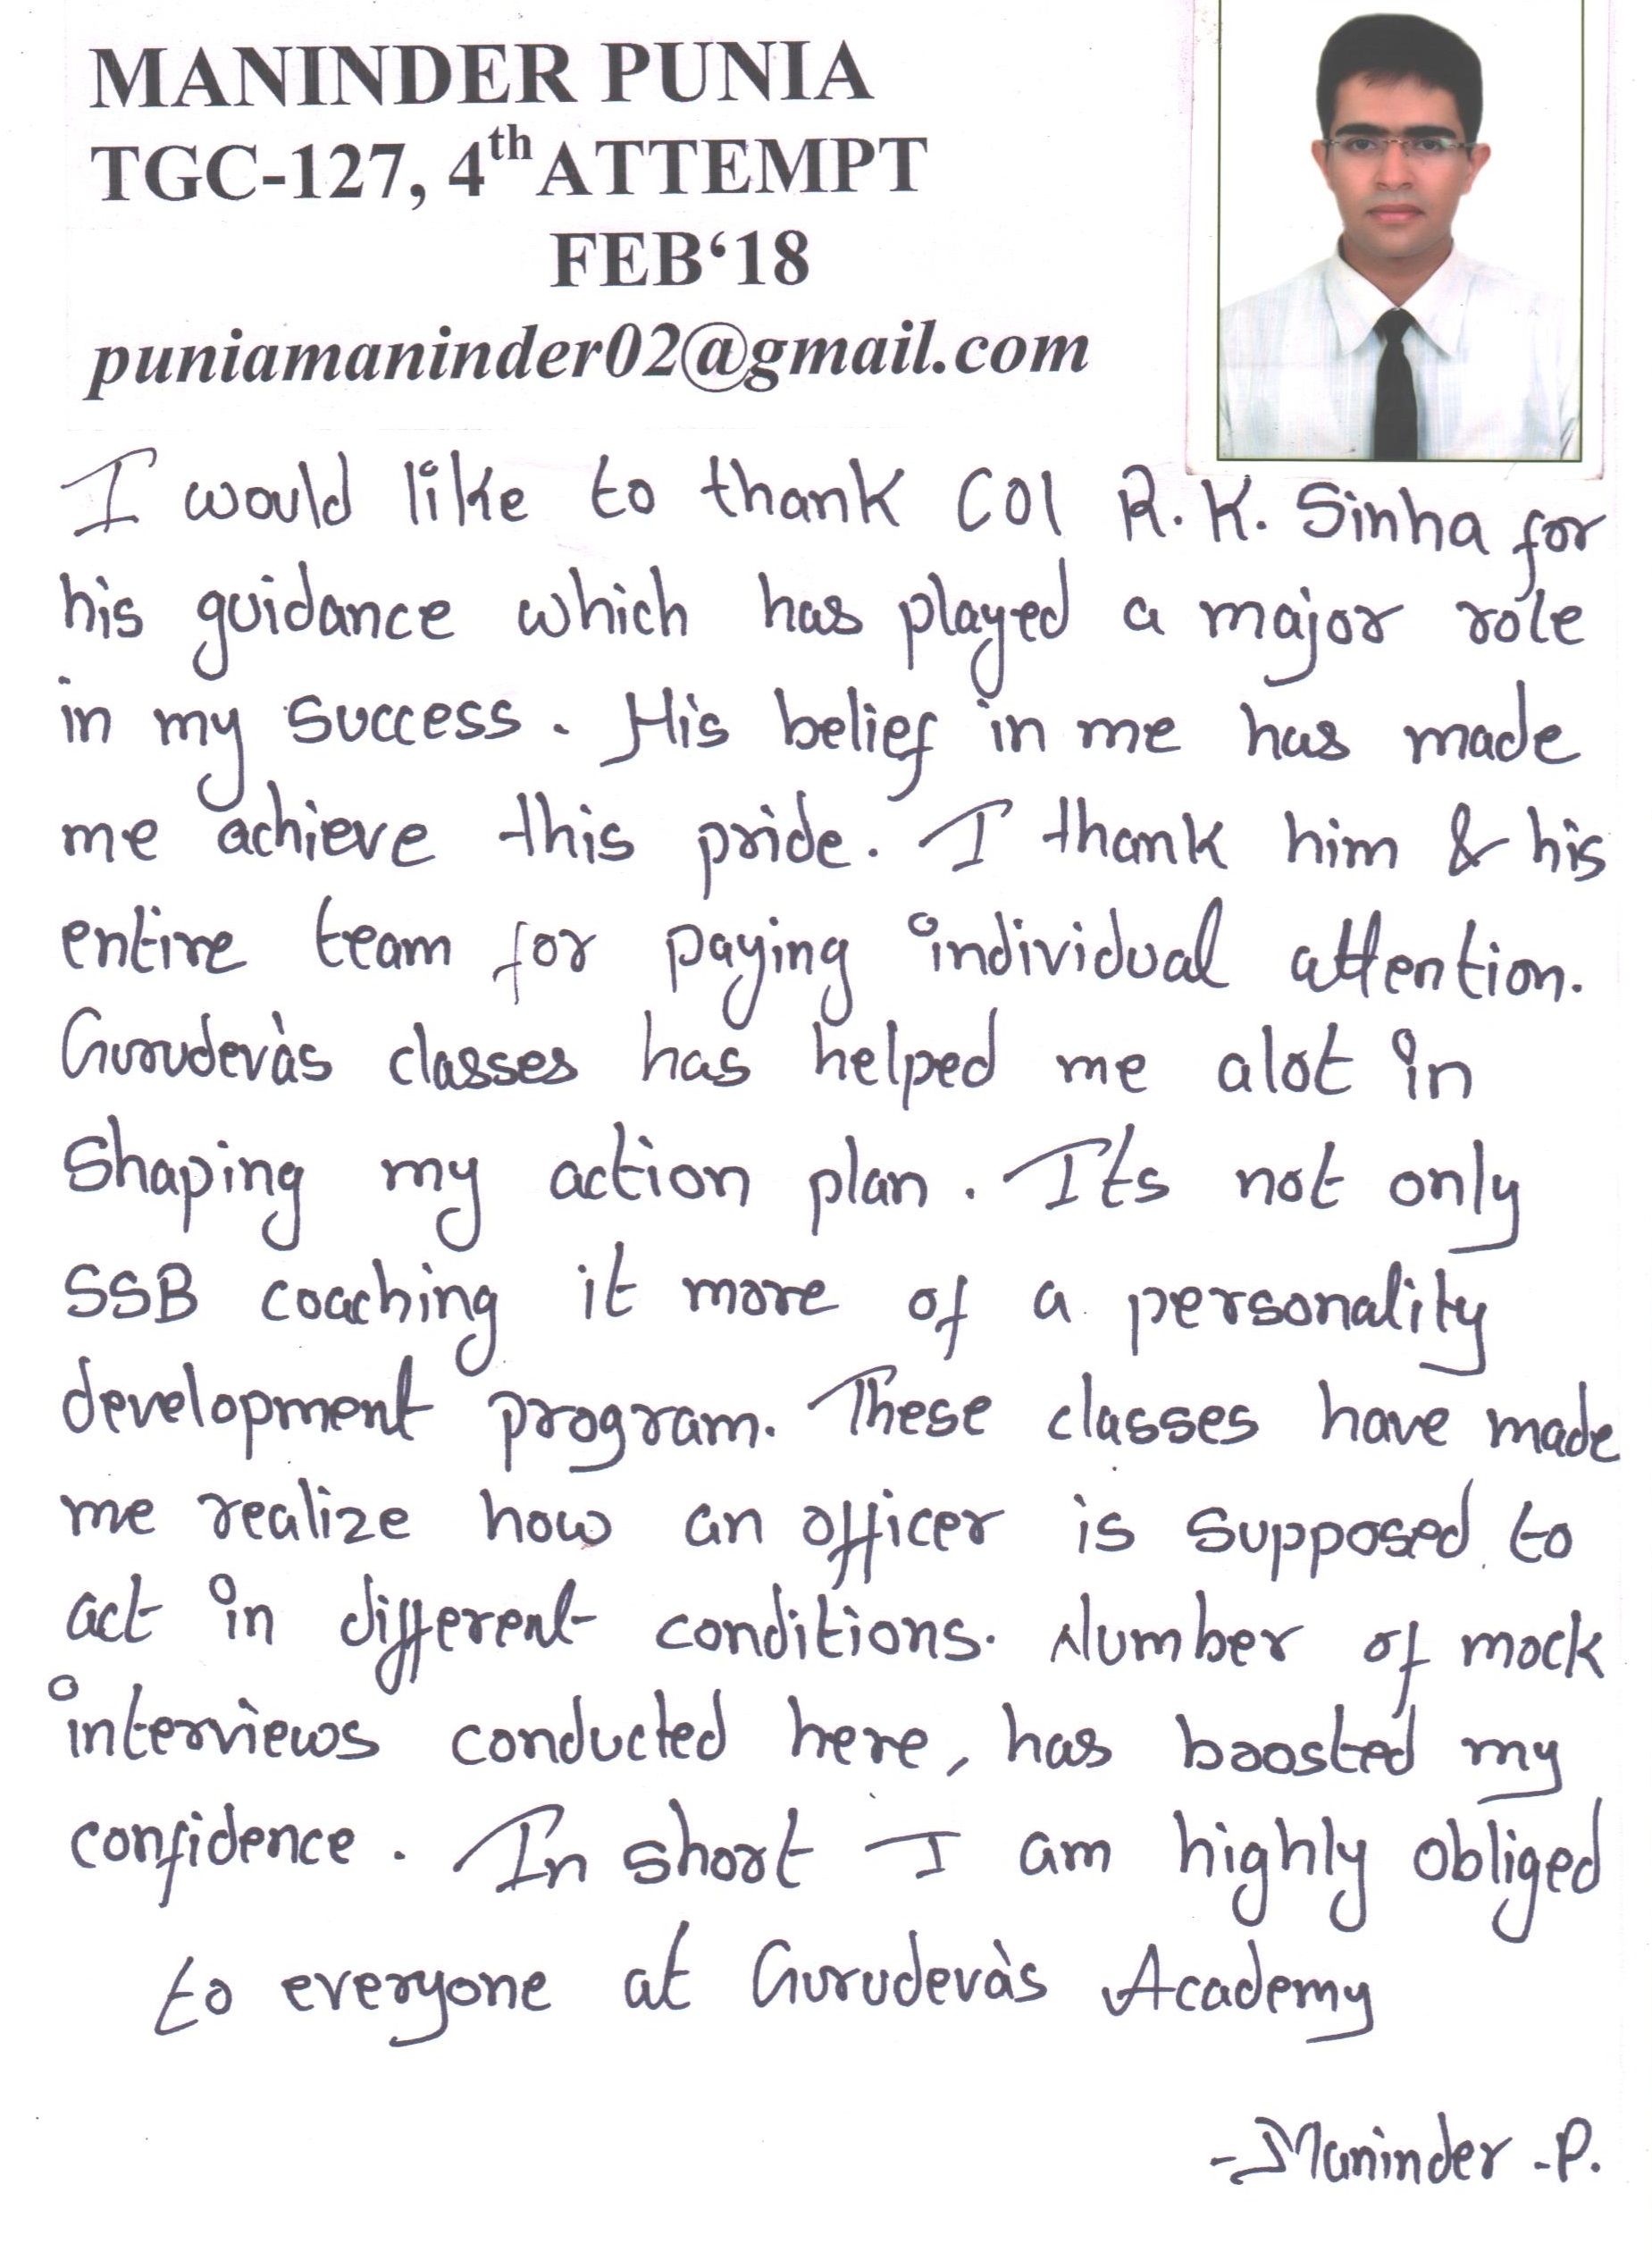 MANINDER PUNIA
TGC-127, 4th ATTEMPT
FEB‘18
puniamaninder02@gmail.com
I would like to thank Col R. K. Sinha for
his guidance which has played a major role
in my success. His belief in me has made
me achieve this pride. I thank him & his
entire team for paying individual attention.
Gurudevàs classes has helped me alot in
shaping my action plan. Its not only
SSB coaching it more of a personality
development program. These classes have made
me realize how an officer is supposed to
act in different conditions. Number of mock
interviews conducted here, has boosted my
confidence. In short I am highly obliged
to everyone at Gurudevàs Academy
-Maninder -P.